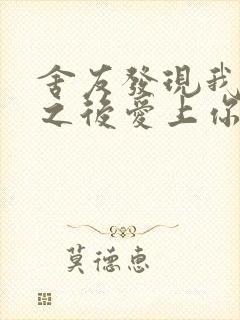 舍友發現我
之後愛上你
莫德惠